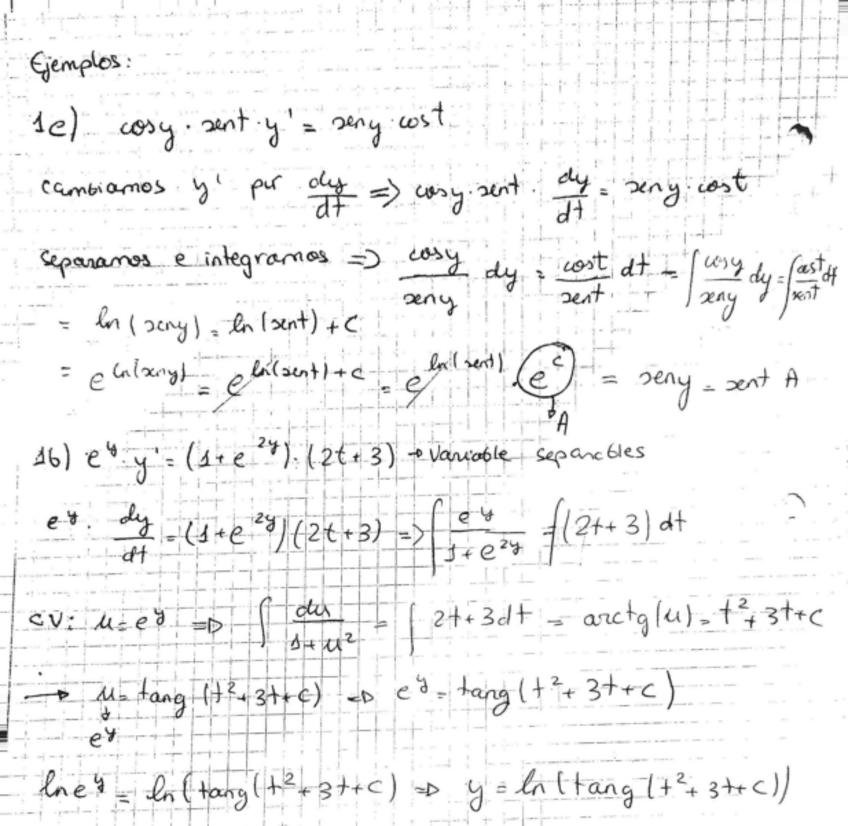 Ejemplos:
1e) cosy · sent · y' = seny · cost
cambiamos y' por dy/dt => cosy · sent · dy/dt = seny · cost
Separamos e integramos => cosy/seny dy = cost/sent dt = ∫ cosy/seny dy = ∫ cost/sent dt
= ln(seny) = ln(sent) + C
= e^ln(seny) = e^ln(sent)+c = e^ln(sent) · e^c = seny = sent A
A
1b) e^y · y' = (1+e^2y) · (2t+3) → Variable separables
e^y · dy/dt = (1+e^2y)(2t+3) => ∫ e^y/1+e^2y = ∫(2t+3) dt
CV: u=e^y => ∫ du/1+u² = ∫ 2t+3dt = arctg(u) = t²+3t+c
→ u = tang (t²+3t+c) => e^y = tang(t²+3t+c)
e^y
lne^y = ln(tang(t²+3t+c) => y = ln(tang(t²+3t+c))